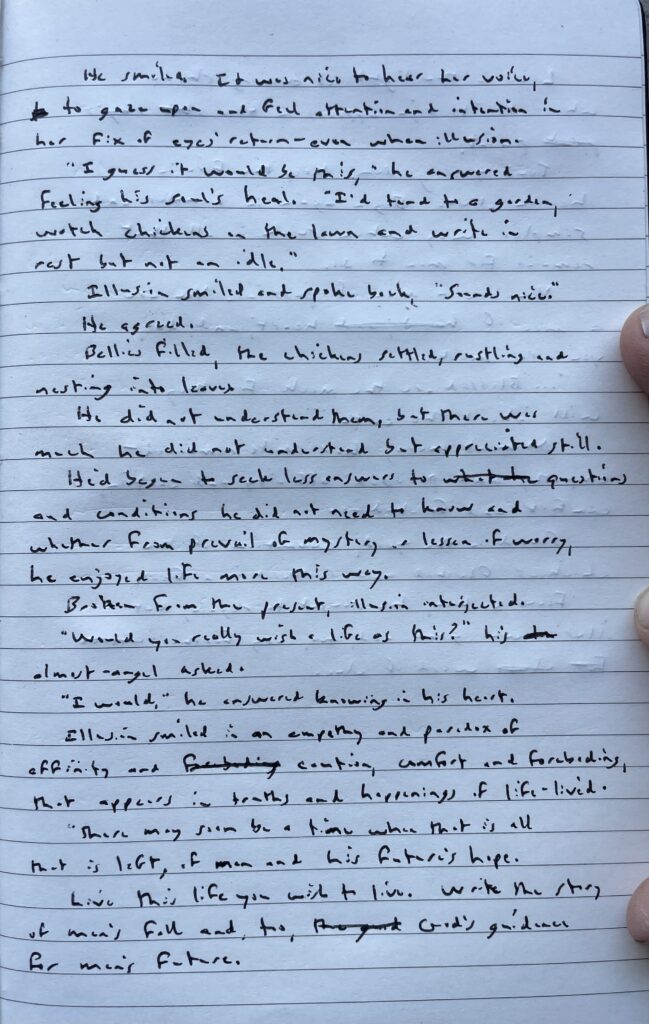 He smiled. It was nice to hear her voice,
to gaze upon and feel attention and intention in
her fix of eyes' return-even when illusion.
"I guess it would be this," he answered
feeling his soul's heal. "I'd tend to a garden,
watch chickens on the lawn and write in
rest but not an idle."
Illusion smiled and spoke back, "Sounds nice."
He agreed.
Bellies filled, the chickens settled, rustling and
nesting into leaves
He did not understand them, but there was
much he did not understand but appreciated still.
He'd began to seek less answers to questions
and conditions he did not need to know and
whether from prevail of mystery or lessen of worry,
he enjoyed life more this way.
Broken from the present, illusion interjected.
"Would you really wish a life as this?" his
almost-angel asked.
"I would," he answered knowing in his heart.
Illusion smiled in an empathy and paradox of
affinity and caution, comfort and foreboding,
that appears in truths and happenings of life-lived.
"There may soon be a time when that is all
that is left, of man and his future's hope.
Live this life you wish to live. Write the story
of men's fall and, too, God's guidance
for men's future.